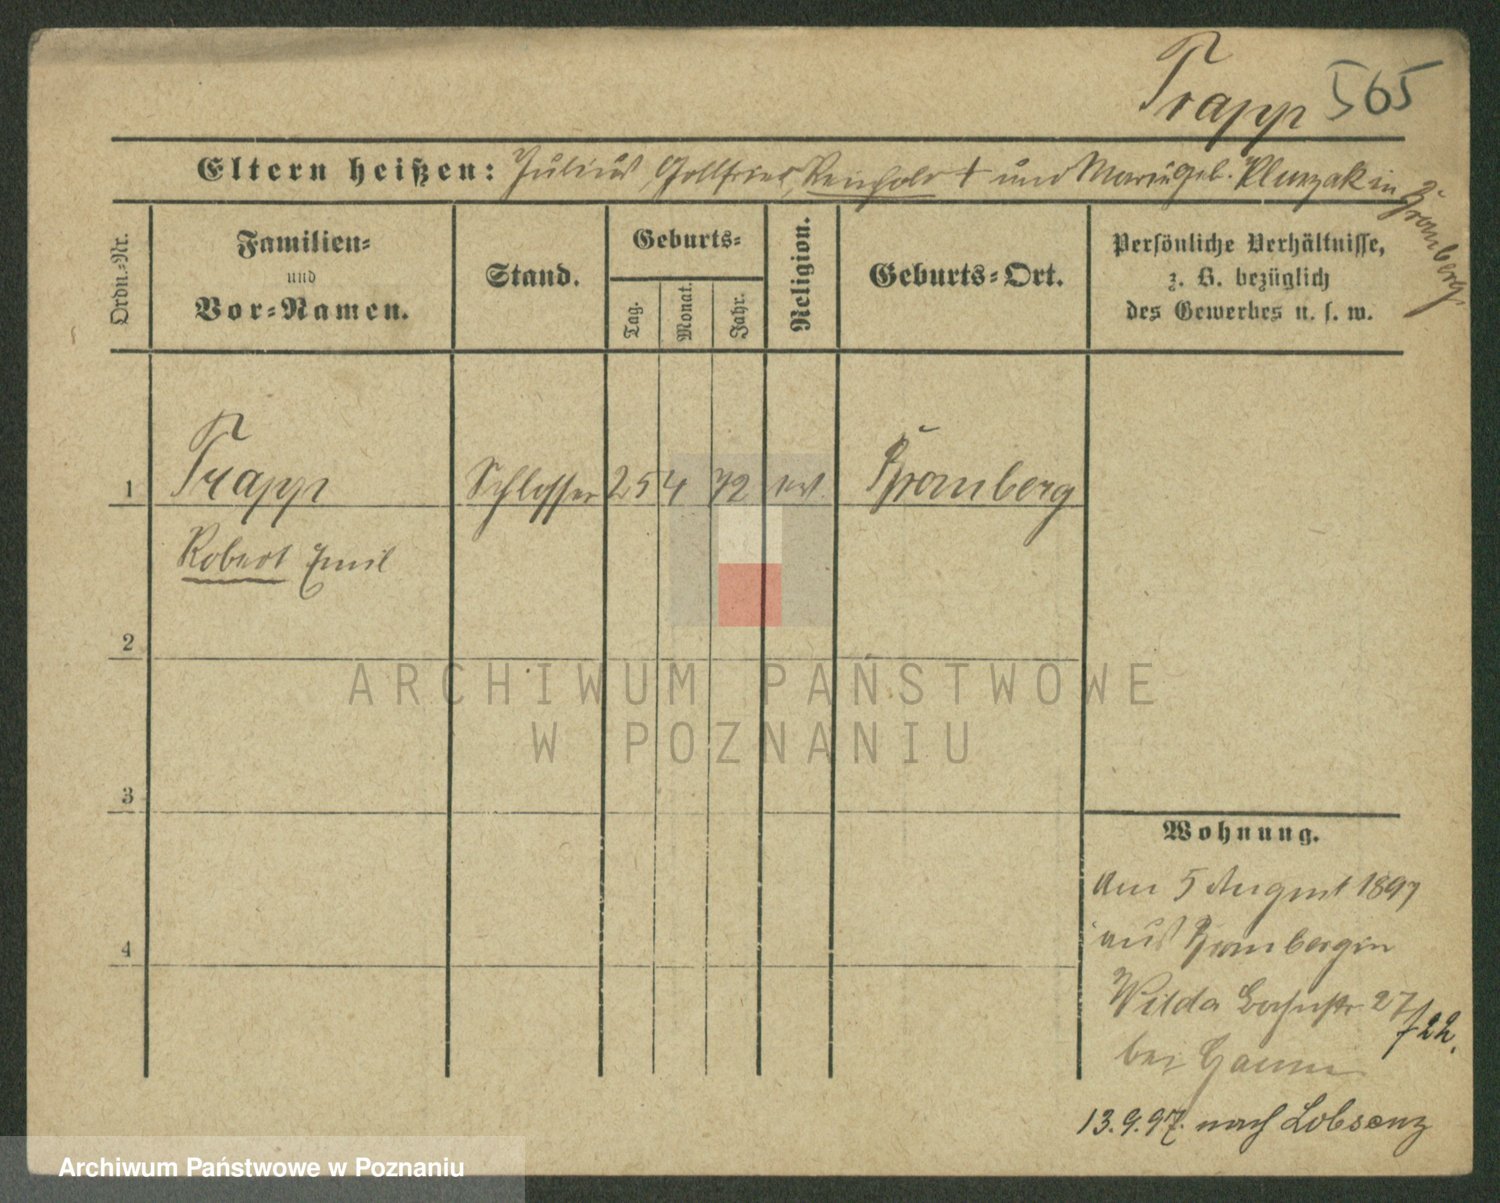 Trapp 565
Eltern heißen: Julius, Gottfried, Reinhold † und Marie geb. Plurzak in Bromberg.
Ordn.-Nr.
Familien-
und
Vor-Namen.
Stand.
Geburts-
Tag.
Monat.
Jahr.
Religion.
Geburts-Ort.
Persönliche Verhältnisse,
z. B. bezüglich
des Gewerbes u. s. w.
1 Trapp Schlosser 25 4 72 ev. Bromberg
Robert Emil
2
3
4
Wohnung.
Am 5 August 1897
aus Bromberg in
Wilda 27
/22.
bei
13.9.97. nach Lobsenz
ARCHIWUM PAŃSTWOWE
W POZNANIU
Archiwum Państwowe w Poznaniu